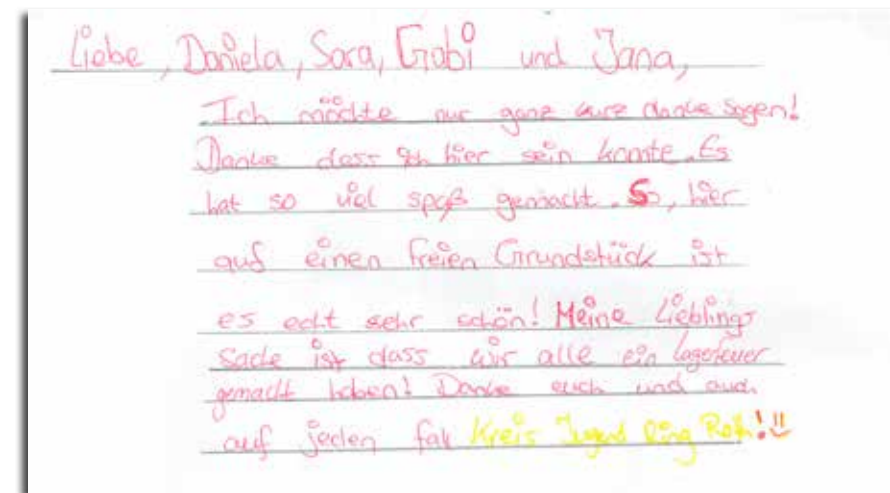 Liebe, Daniela, Sara, Gabi und Jana,
Ich möchte nur ganz kurz danke sagen!
Danke dass ich hier sein konnte. Es
hat so viel spaß gemacht. So, hier
auf einen freien Grundstück ist
es echt sehr schön! Meine Lieblings
Sache ist dass wir alle ein lagerfeuer
gemacht haben! Danke euch und auch
auf jeden fall Kreis Jugend Ring Roth!!!